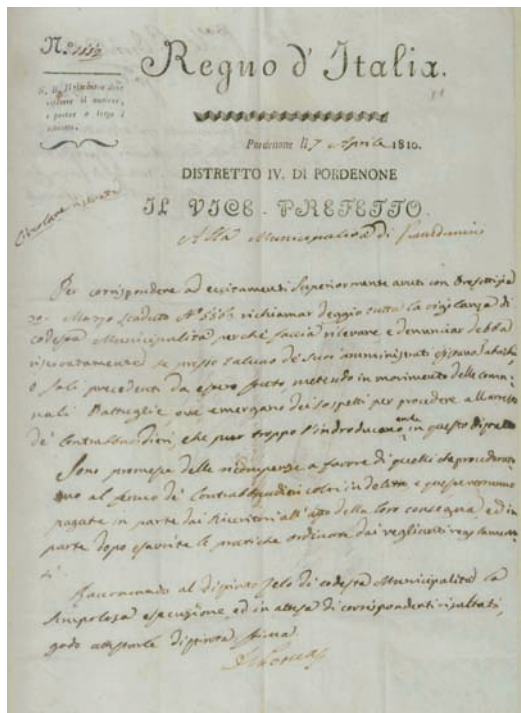 N.º
Regno d' Italia.
N. B. Nella
il numero,
a tergo
Pordenone li 7 Aprile 1810.
DISTRETTO IV. DI PORDENONE
IL VICE-PREFETTO
Circolare
Alla Municipalità di
Per corrispondere ad eccitamenti Superiormente avuti con
Marzo scaduto Nº richiamar deggio tutta la vigilanza di
codesta Municipalità perchè faccia rilevare e denunciar debba
se presso taluno de' Suoi amministrati
o Sali precedenti da estero mettendo in movimento delle comu-
nali Pattuglie ove emergano dei sospetti per procedere all'arresto
de' Contrabbandieri, che pur troppo in questo Distretto
Sono promesse delle ricompense a favore di quelli che
al fermo de' Contrabbandieri colti in delitto, e queste verranno
pagate in parte dai Ricevitori all' atto della loro consegna, ed in
parte dopo esaurite le pratiche ordinate dai veglianti regolamen-
ti.
Raccomando al distinto zelo di codesta Municipalità la
scrupolosa esecuzione, ed in attesa di corrispondenti risultati,
godo attestarle distinta stima